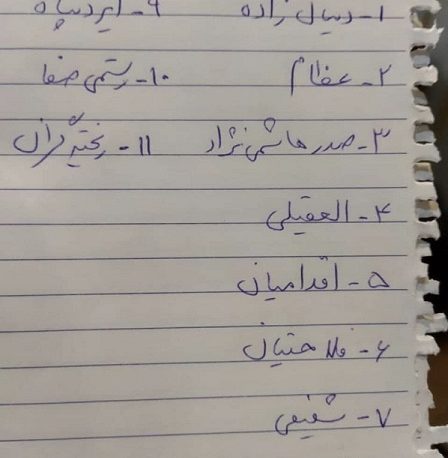 ۱- دنیال زاده ۹- ایزدپناه
۲- عظام ۱۰- رستمی صفا
۳- صدرهاشمی نژاد ۱۱- ریخته گران
۴- العقیلی
۵- اقدامیان
۶- فلاحتیان
۷- شفیعی